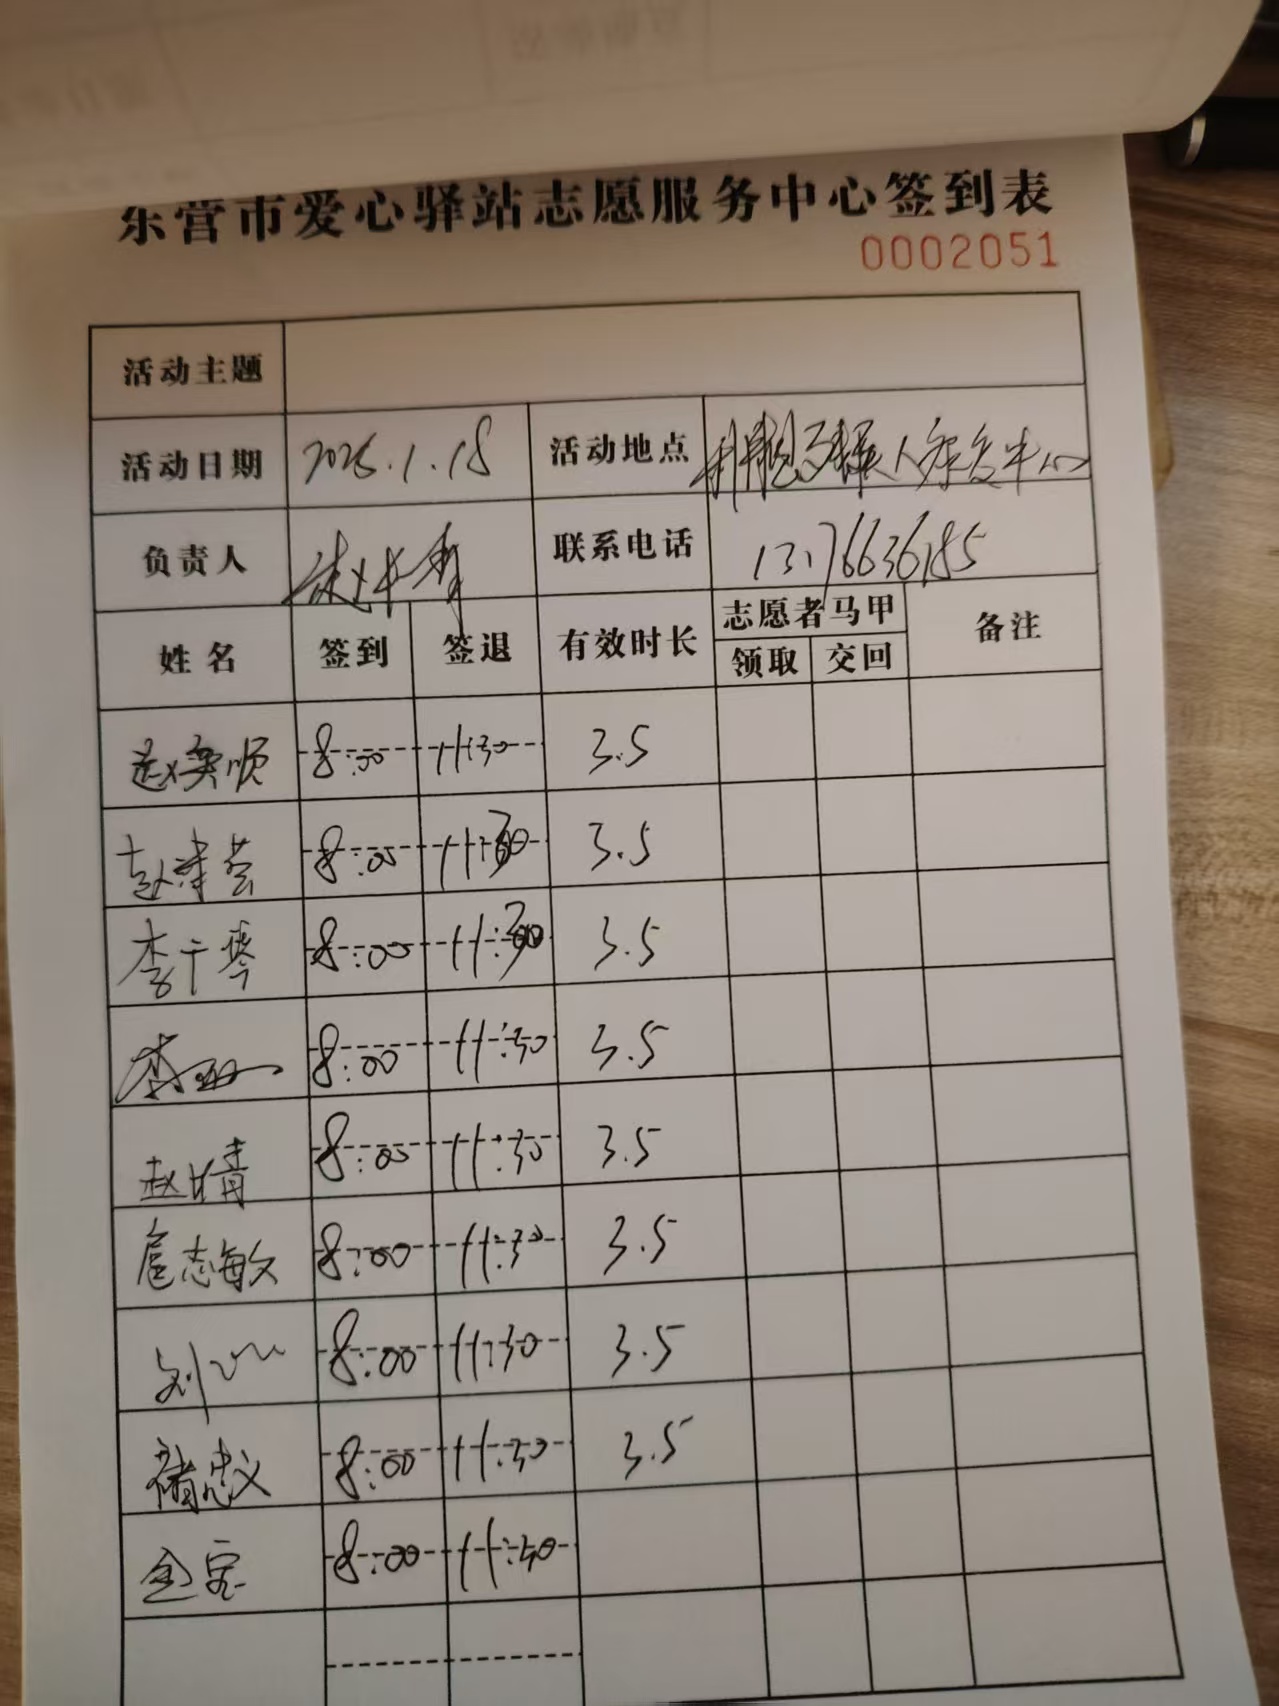 东营市爱心驿站志愿服务中心签到表
0002051
活动主题
活动日期 2026.1.18 活动地点 人康复中心
负责人 赵 联系电话 13176636185
姓名 签到 签退 有效时长 志愿者马甲 备注
领取 交回
赵奕顺 8:00 11:30 3.5
赵津荟 8:00 11:30 3.5
李千琴 8:00 11:30 3.5
李 8:00 11:30 3.5
赵晴 8:00 11:30 3.5
扈志敏 8:00 11:30 3.5
刘 8:00 11:30 3.5
褚忠义 8:00 11:30 3.5
金宝 8:00 11:30